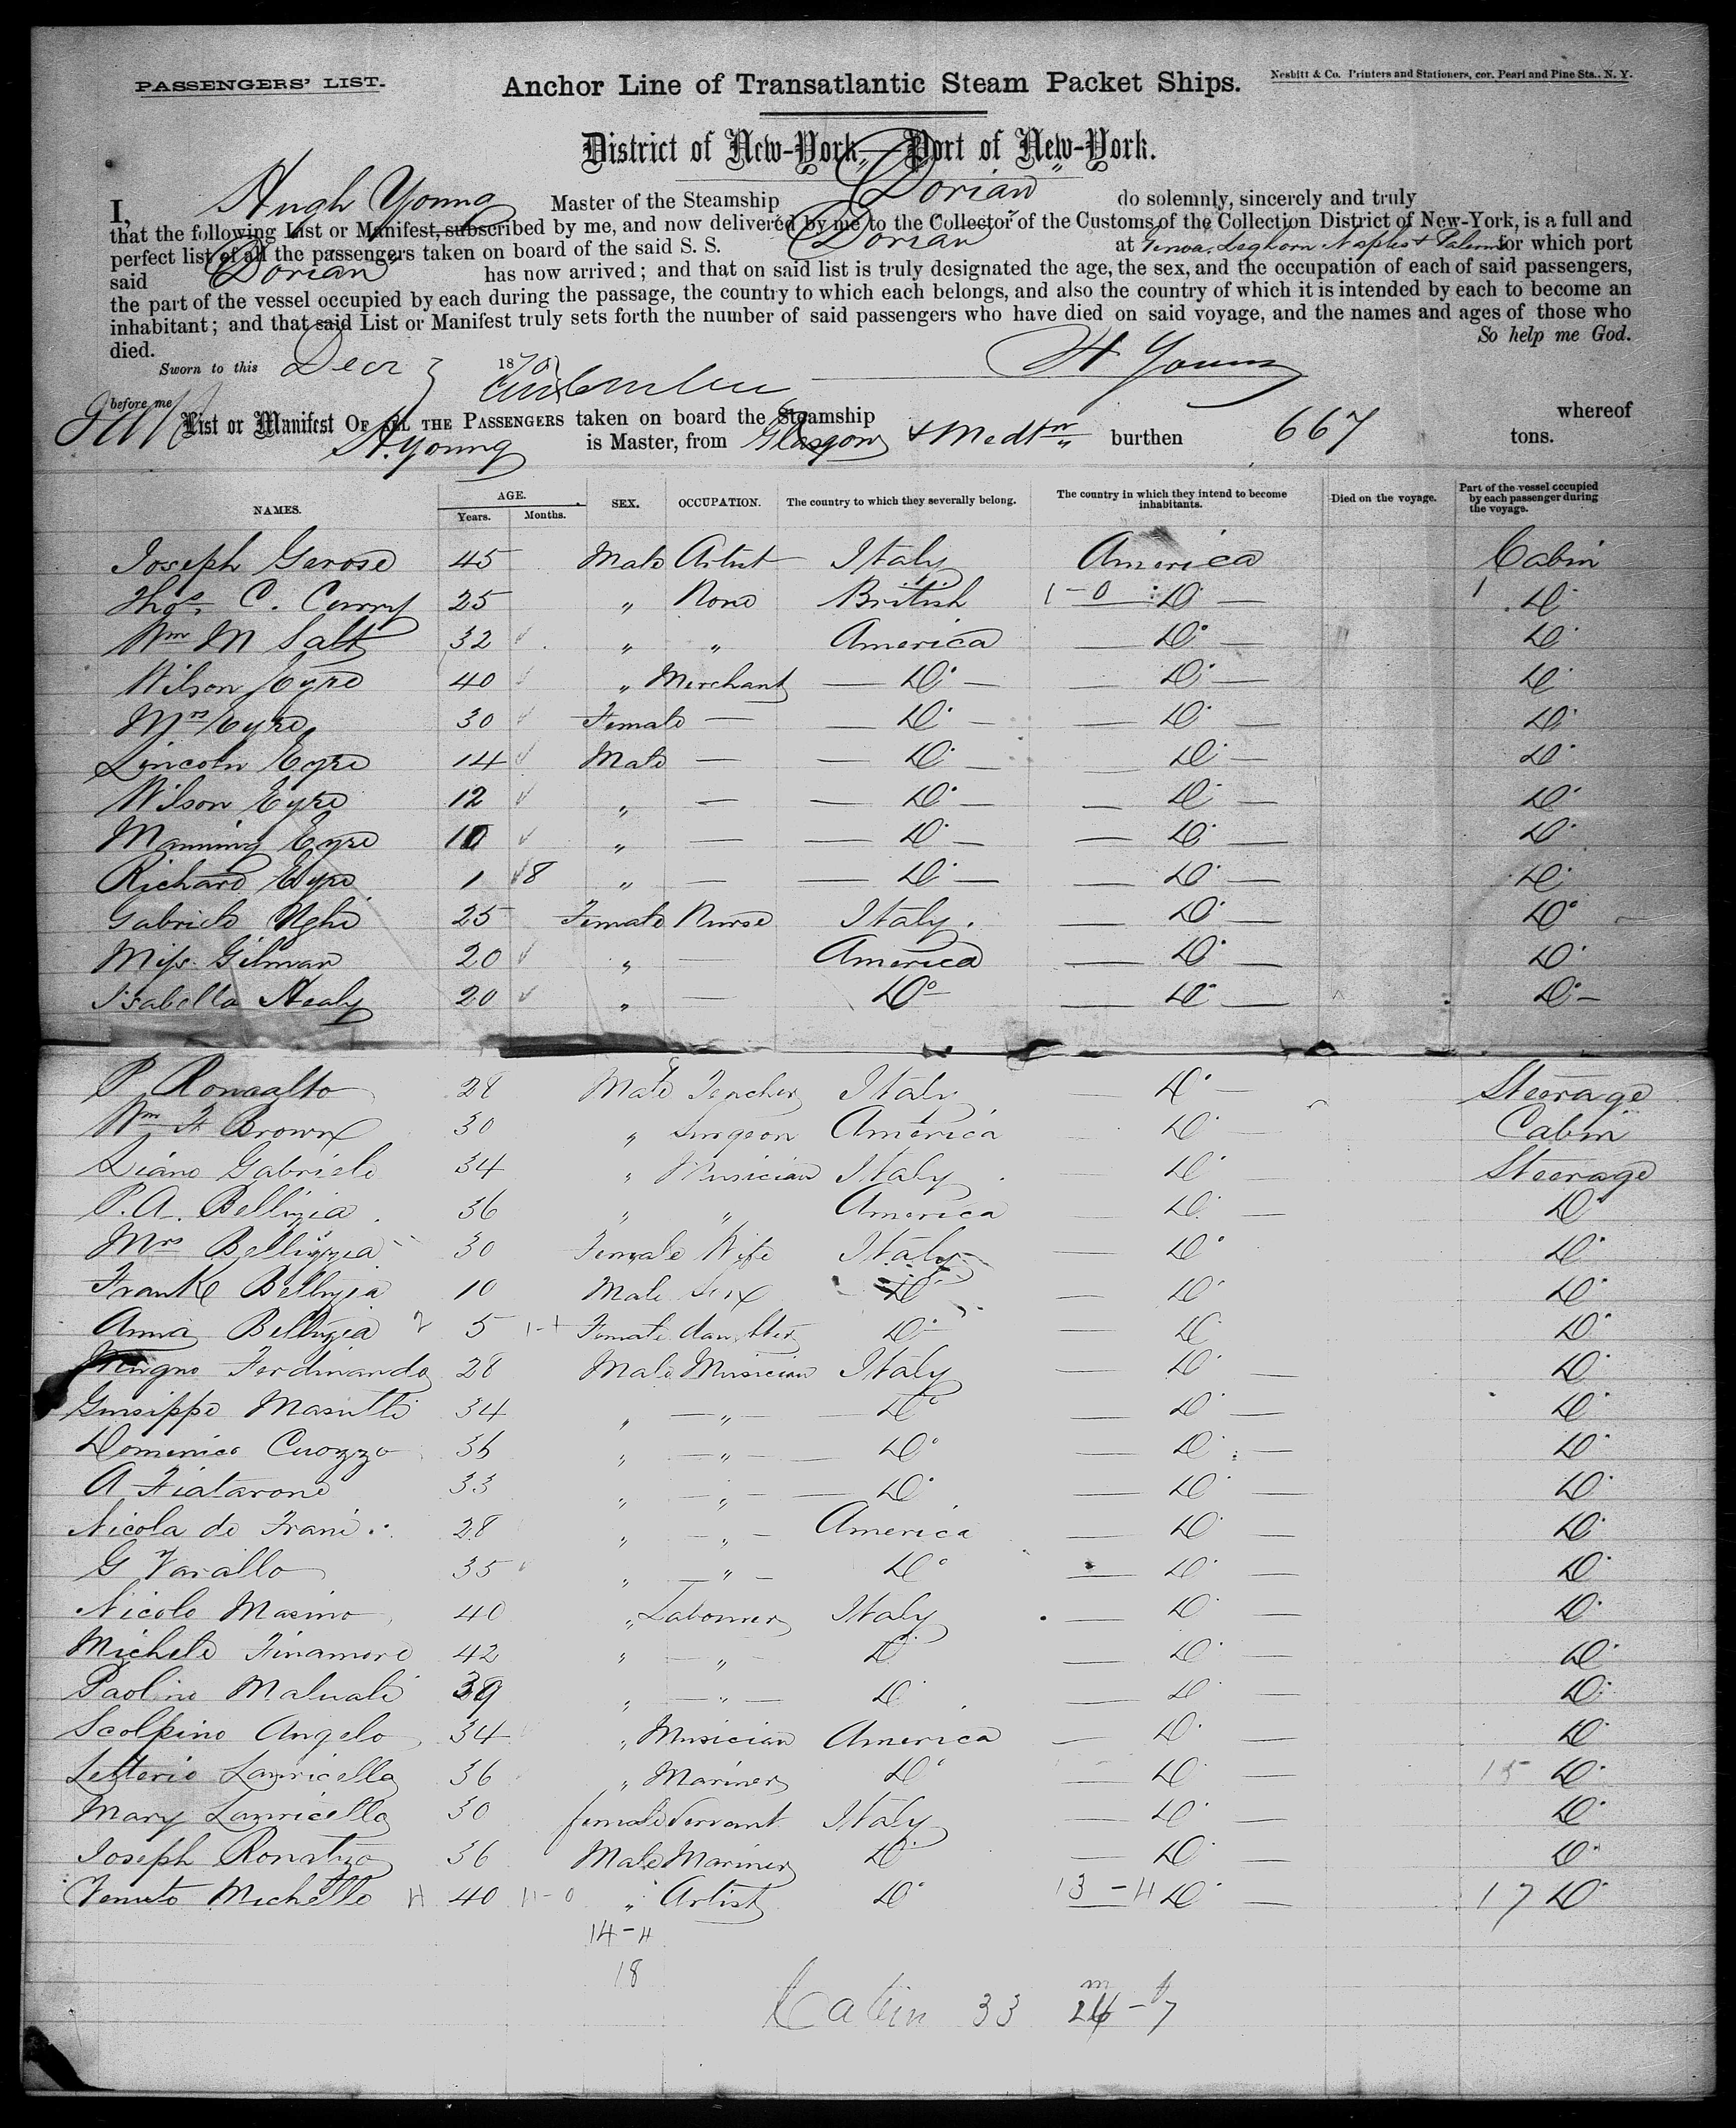 PASSENGERS' LIST.
Anchor Line of Transatlantic Steam Packet Ships.
Nesbitt & Co. Printers and Stationers, cor. Pearl and Pine Sts., N. Y.
District of New-York,—Port of New-York.
I, Hugh Young Master of the Steamship Dorian do solemnly, sincerely and truly
that the following List or Manifest, subscribed by me, and now delivered by me to the Collector of the Customs of the Collection District of New-York, is a full and
perfect list of all the passengers taken on board of the said S. S. Dorian at Genoa, Leghorn Naples & Palermo for which port
said Dorian has now arrived; and that on said list is truly designated the age, the sex, and the occupation of each of said passengers,
the part of the vessel occupied by each during the passage, the country to which each belongs, and also the country of which it is intended by each to become an
inhabitant; and that said List or Manifest truly sets forth the number of said passengers who have died on said voyage, and the names and ages of those who
died. So help me God.
Sworn to this Decr 3 1870 H Young
before me
List or Manifest OF ALL THE PASSENGERS taken on board the Steamship whereof
H. Young is Master, from Glasgow & Medtn burthen 667 tons.
NAMES. AGE. Years. Months. SEX. OCCUPATION. The country to which they severally belong. The country in which they intend to become inhabitants. Died on the voyage. Part of the vessel occupied by each passenger during the voyage.
Joseph Garose 45 Male Artist Italy America Cabin
Thos. C. Curry 25 " None British 1-0 Do 1 Do
Wm M Salt 32 " " America Do Do
Wilson Eyre 40 " Merchant Do Do Do
Mrs Eyre 30 Female — Do Do Do
Lincoln Eyre 14 Male — Do Do Do
Wilson Eyre 12 " — Do Do Do
Manning Eyre 10 " — Do Do Do
Richard Eyre 1 8 " — Do Do Do
Gabriele Nghi 25 Female Nurse Italy. Do Do
Miss Gilman 20 " — America Do Do
Isabella Healy 20 " — Do Do Do
P. Roncalto 28 Male Teacher Italy Do Steerage
Wm H Brown 30 " Surgeon America Do Cabin
Liano Gabriele 34 " Musician Italy Do Steerage
P. A. Bellizia 36 " " America Do Do
Mrs Bellizzia 30 Female Wife Italy Do Do
Frank Bellizia 10 Male Son Do Do Do
Anna Bellizia 5 Female daughter Do Do Do
Ferdinando 28 Male Musician Italy Do Do
Guisippe Masutti 34 " " Do Do Do
Domenico Cuozzo 36 " " Do Do Do
A Fiatarone 33 " " Do Do Do
Nicola de Frani 28 " " America Do Do
G Varallo 35 " " Do Do Do
Nicolo Masino 40 " Labourer Italy Do Do
Michele Finamore 42 " " Do Do Do
Paolino Malnati 39 " " Do Do Do
Scolpino Angelo 34 " Musician America Do Do
Letterio Lauricella 36 " Mariner Do Do 15 Do
Mary Lauricella 30 female Servant Italy Do Do
Joseph Ronatzo 36 Male Mariner Do Do Do
Venuto Michello 40 11-0 " Artist Do 13-4 Do 17 Do
14-4
18
Cabin 33 m 26 - f 7